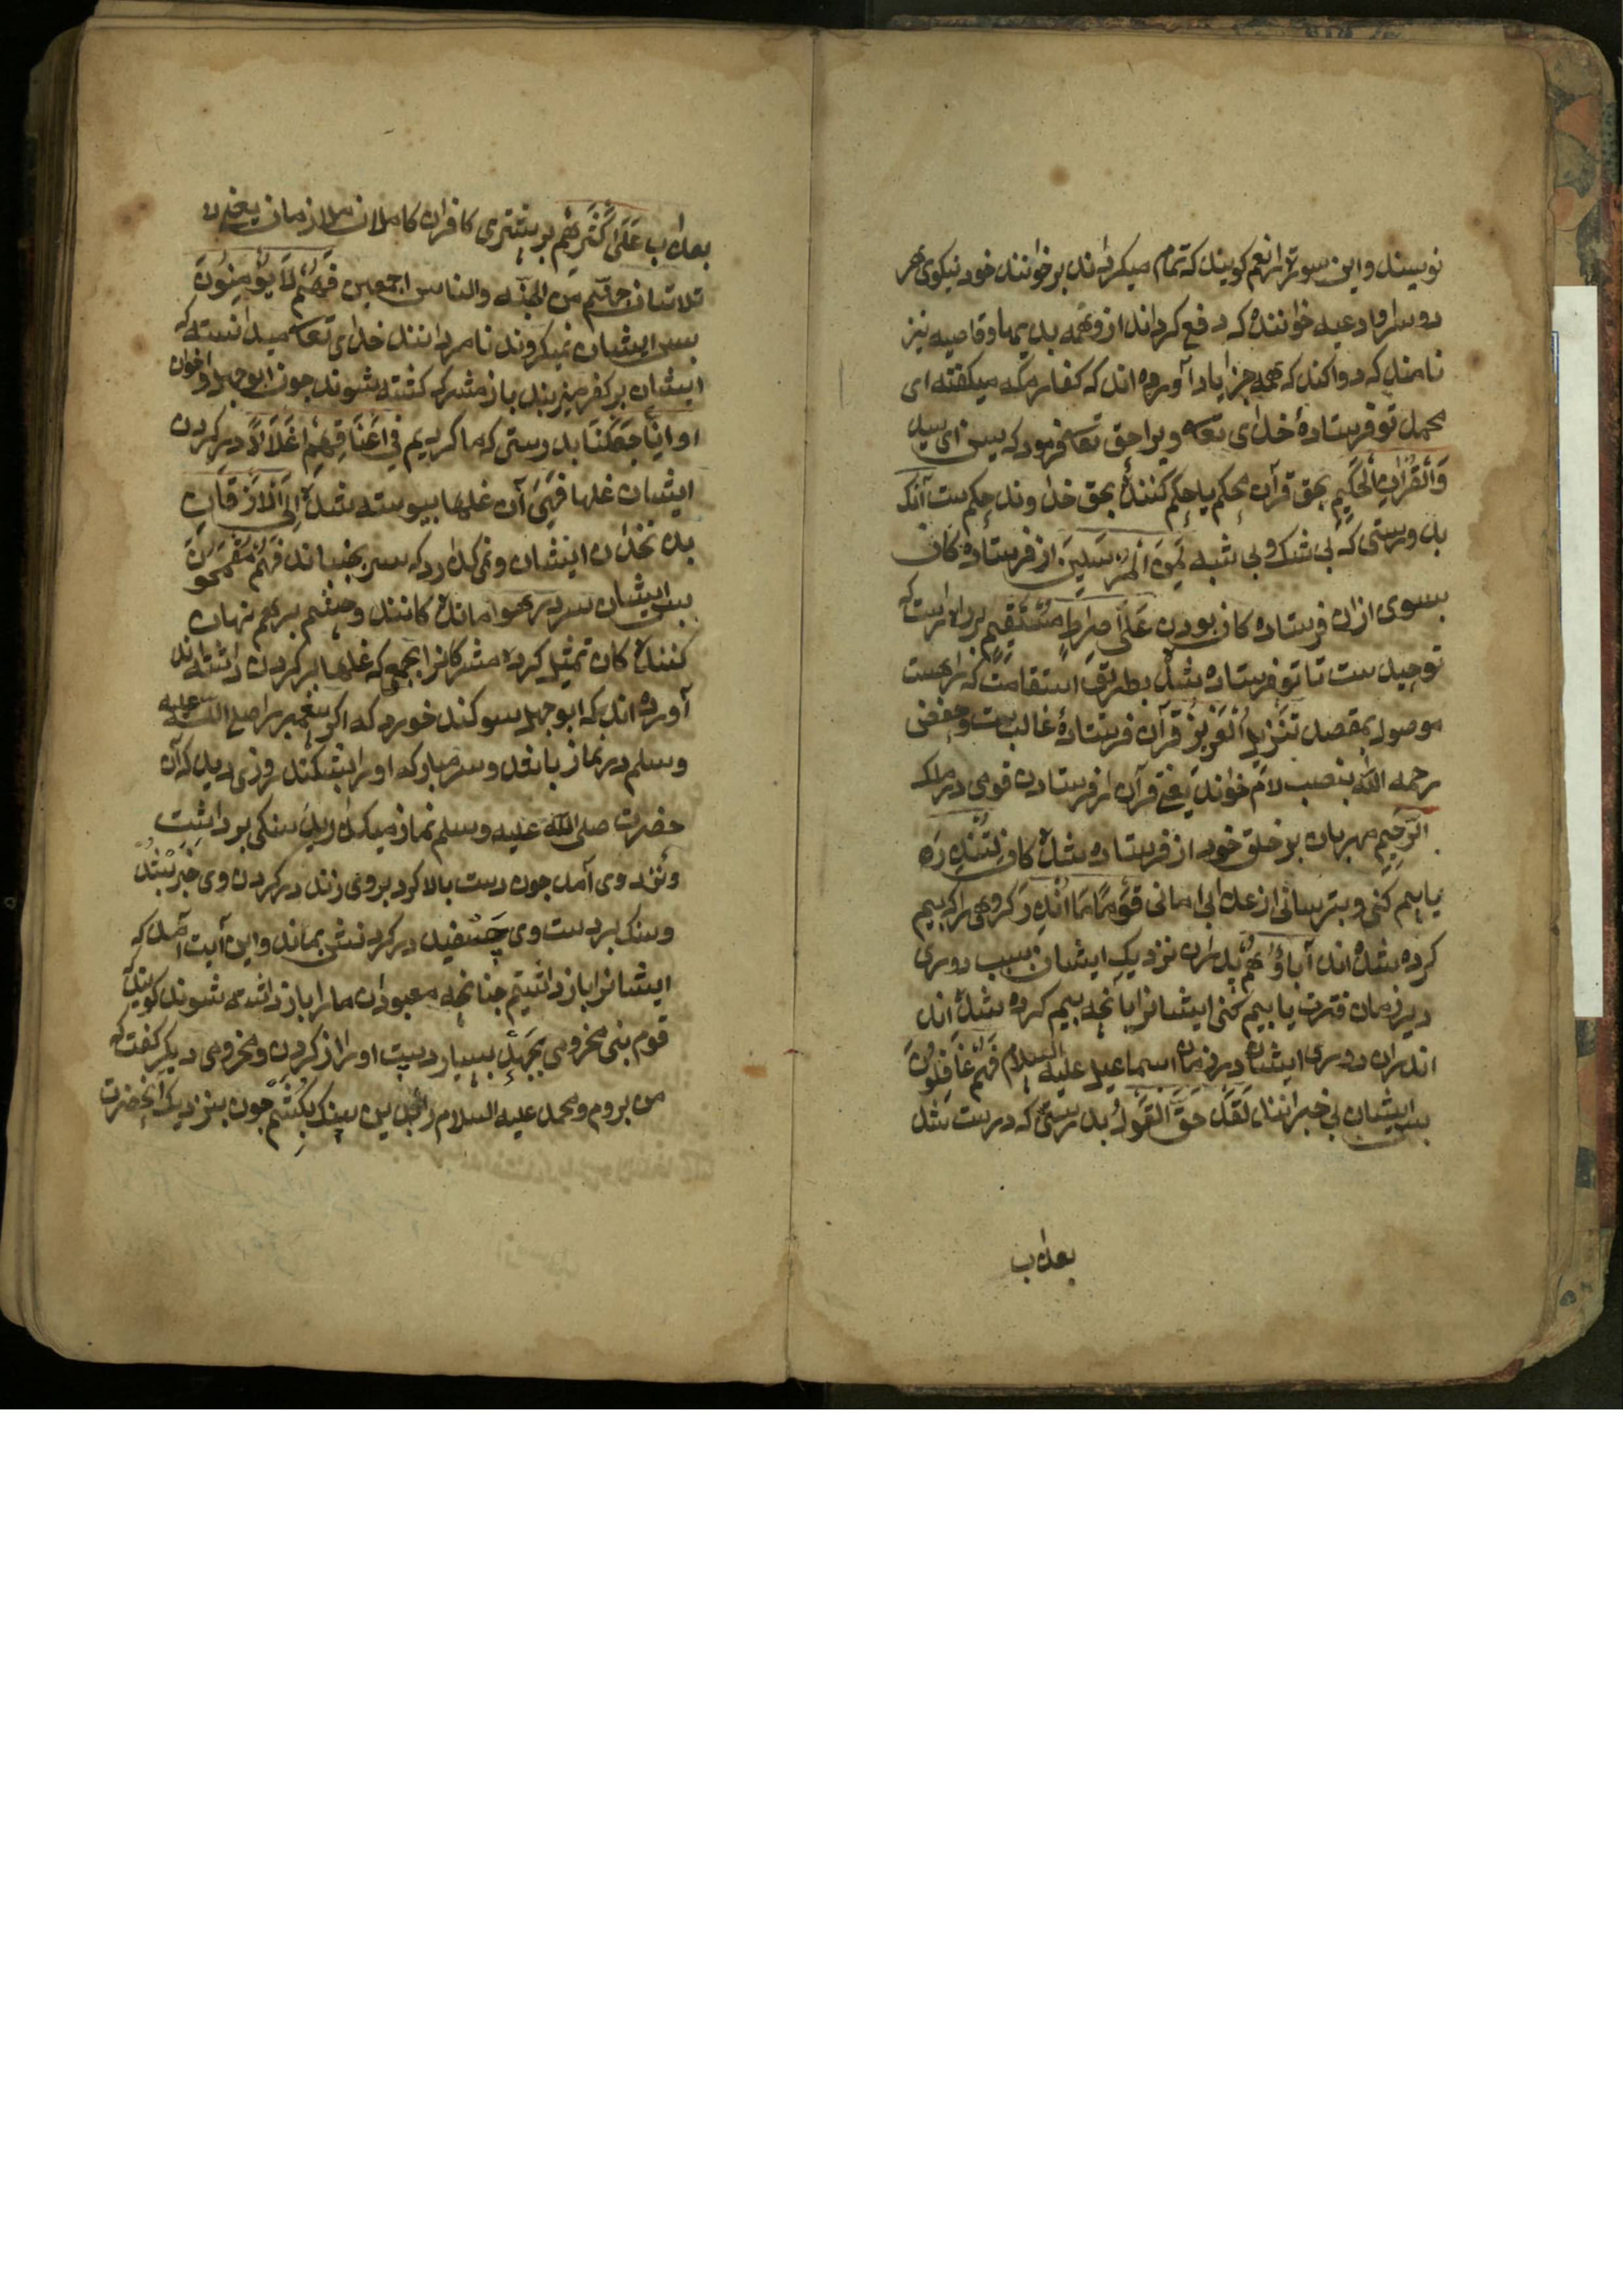 نویسند و این سورة را نعم کویند که تمام میکرداند بر خوانند خود نیکوی هر
دو سرا و ادعیه خوانند که دفع کرداند از و همه بدیها و قاضیه نیز
نامند که روا کند که همه جز ایاد آورده اند که کفار مکه میکفته ای
محمد تو فرستادهٔ خدای تعا و برا حق تعا فرمود که یس ای سید
وَالْقُرْاٰنِ الْحَکِیْمِ بحق قرآن محکم یا حکم کنندهٔ بحق خداوند حکم ست آنک
بدورستی که بی شک و بی شبه لَمِنَ الْمُرْسَلِیْنَ از فرستاده کان
بسوی ازان فرستاده کان بودن عَلٰی صِرَاطٍ مُسْتَقِیْمٍ بر راه راست که
توحید ست تا تو فرستاده شدهٔ بطریق استقامت که راهست
موصول بمقصد تَنْزِیْلَ الْعَزِیْزِ قرآن فرستادهٔ غالب ست و حفص
رحمه الله بنصب لام خواند یعنی قرآن را فرستادن قوی در ملک
الرَّحِیْمِ مهربان بر خلق خود از فرستاده شدهٔ کان لِتُنْذِرَ
یا بیم کنی و بترسانی از عذابی امانی قَوْمًا مَا اُنْذِرَ کروهی را که بیم
کرده شده اند آباؤُهُمْ پدران نزدیک ایشان بسبب دوری
در زمان فترت یا بیم کنی ایشانرا بانچه بیم کرده شده اند
اند بران دوری ایشان در زمان اسماعیل علیه السلام فَهُمْ غَافِلُوْنَ
پس ایشان بی خبرانند لَقَدْ حَقَّ الْقَوْلُ بدرستی که درست شد
بعذاب
بعذاب عَلٰی اَکْثَرِهِمْ بر بیشتری کافران کاملان ملازمان یعنی
ثلاشان جهنم من الجنه والناس اجمعین فَهُمْ لَا یُؤْمِنُوْنَ
پس ایشان نمیکروند نامردانند خدای تعا میدانسته که
ایشان بر کفر میزیند باز مشرک کشته شوند چون ابوجهل و اخوان
او اِنَّا جَعَلْنَا بدرستی که ما کردیم فِیْ اَعْنَاقِهِمْ اَغْلَالًا در کردن
ایشان غلها فَهِیَ آن غلها پیوسته شده اِلَی الْاَذْقَانِ
بذنخدان ایشان و نمی کذارد که سر بجنباند فَهُمْ مُقْمَحُوْنَ
پس ایشان سر در هوا مانده کانند و چشم بر هم نهان
کننده کان تمثیل کرده مشرکانرا بجمعی که غلها بر کردن داشته اند
آورده اند که ابوجهل سوکند خورد که اکر پیغمبر را صلی الله علیه
وسلم در نماز یابد و سر مبارک او را بشکند روزی دید که آن
حضرت صلی الله علیه وسلم نماز میکذارید سنکی برداشت
ونزد وی آمد چون دست بالا کرد بر وی زند در کردن وی خبر بشد
وسنک بر دست وی چسفید در کردنش بماند و این آیت آمد که
ایشانرا باز داشتیم چنانچه معبودان ما را باز داشته شوند کویند
قوم بنی مخزومی بجهل بسیار دست او را از کردن و مخزومی دیکر کفت که
من بروم و محمد علیه السلام را بدین سنک بکشم چون بنزدیک آنحضرت